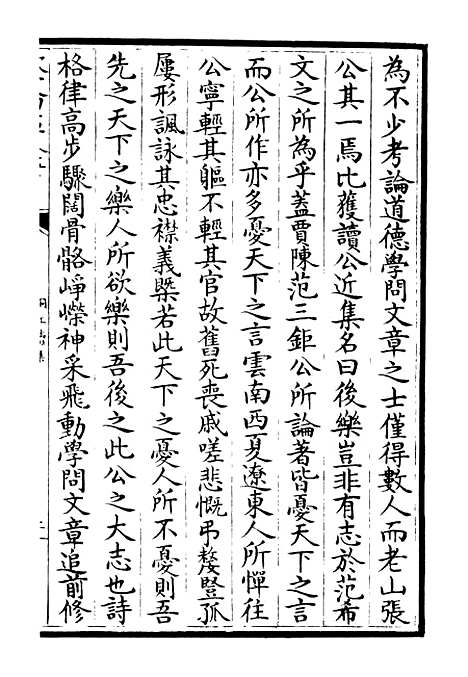 為不少考論道德學問文章之士僅得數人而老山張
公其一焉比獲讀公近集名曰後樂豈非有志於范希
文之所為乎蓋賈陳范三鉅公所論著皆憂天下之言
而公所作亦多憂天下之言雲南西夏遼東人所憚往
公寧輕其軀不輕其官故舊死喪戚嗟悲慨弔嫠豎孤
屢形諷詠其忠襟義槩若此天下之憂人所不憂則吾
先之天下之樂人所欲樂則吾後之此公之大志也詩
格律高步驟闊骨骼崢嶸神采飛動學問文章追前修